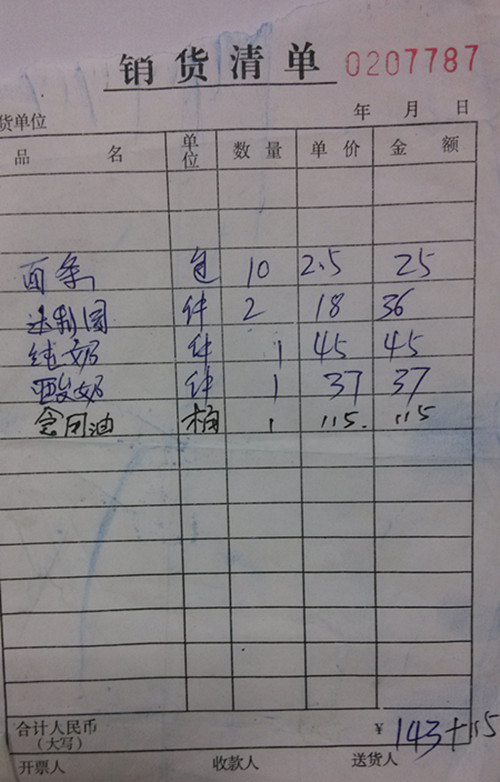 销货清单 0207787
货单位 年 月 日
品 名 单位 数 量 单 价 金 额
面条 包 10 2.5 25
达利园 件 2 18 36
纯奶 件 1 45 45
酸奶 件 1 37 37
食用油 桶 1 115. 115
合计人民币 ¥ 143+115
(大写)
开票人 收款人 送货人